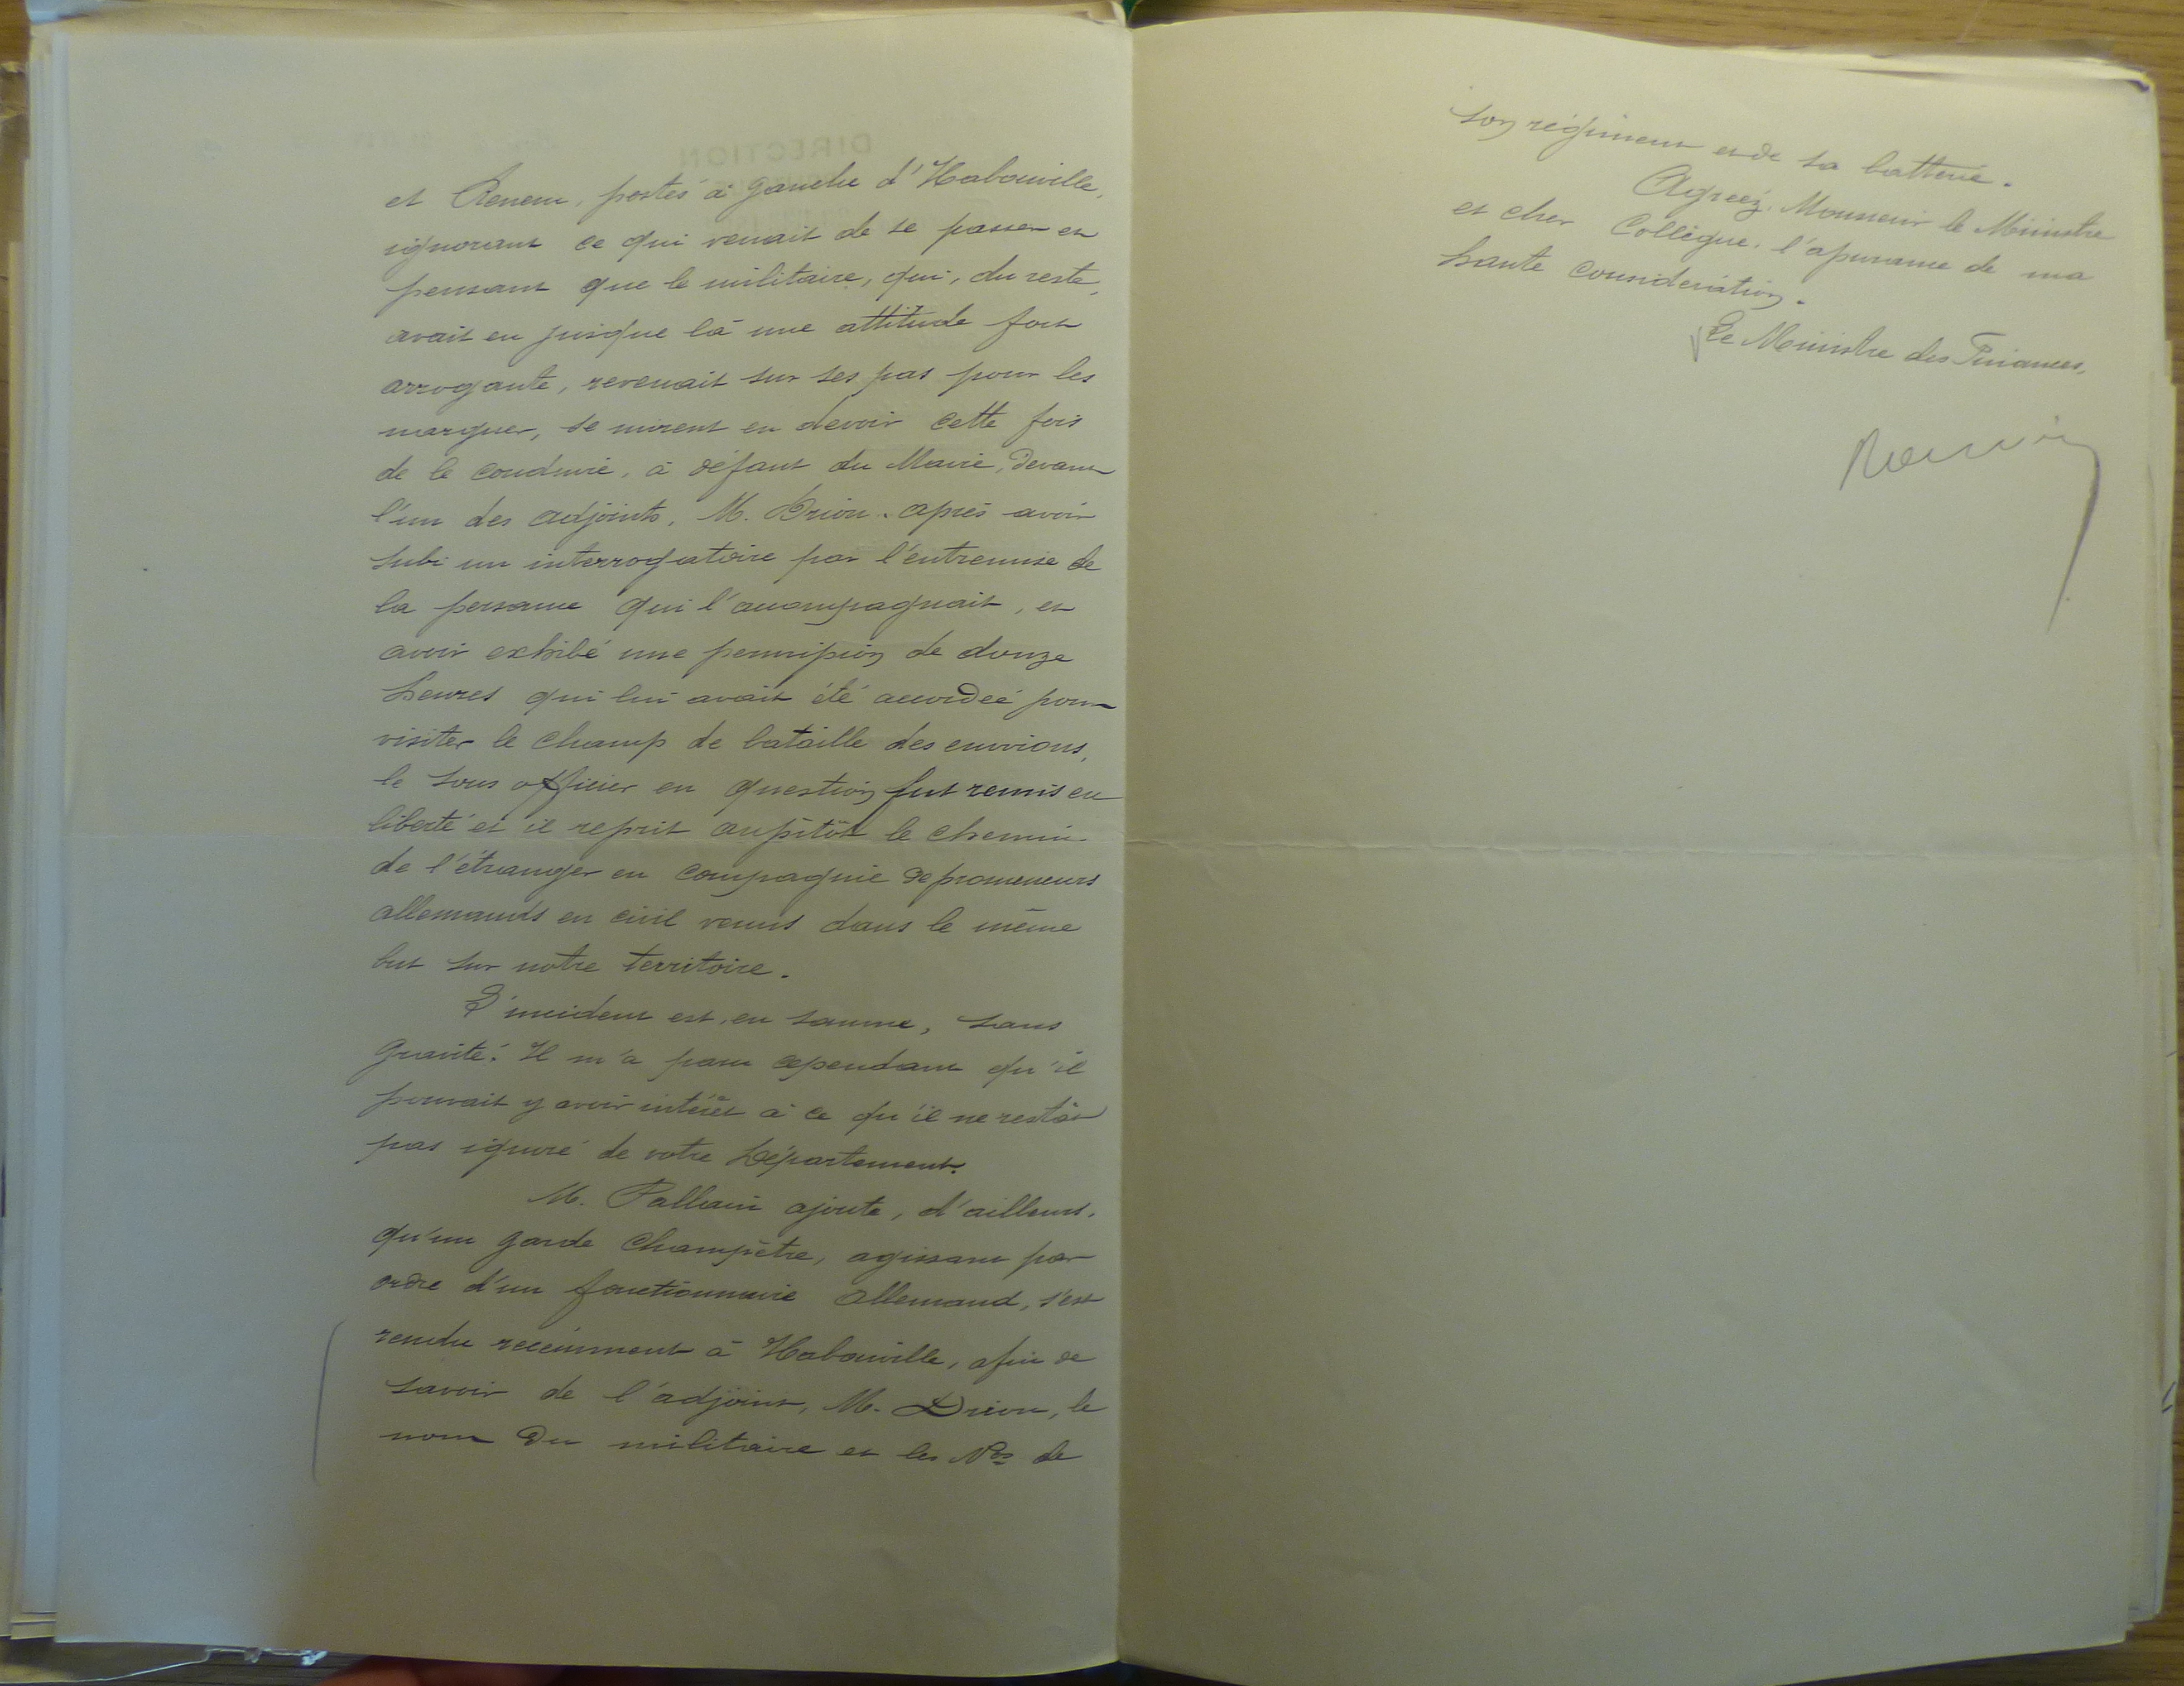 et Renem, postés à gauche d'Habouville,
ignorant ce qui venait de se passer et
pensant que le militaire, qui, du reste,
avait eu jusque là une attitude fort
arrogante, revenait sur ses pas pour les
narguer, se mirent en devoir cette fois
de le conduire, à défaut du Maire, devant
l'un des adjoints, M. Drion. Après avoir
subi un interrogatoire par l'entremise de
la personne qui l'accompagnait, et
avoir exhibé une permission de douze
heures qui lui avait été accordée pour
visiter le champ de bataille des environs,
le sous officier en question fut remis en
liberté et il reprit aussitôt le chemin
de l'étranger en compagnie de promeneurs
allemands en civil venus dans le même
but sur notre territoire.
L'incident est, en somme, sans
gravité. Il m'a paru cependant qu'il
pouvait y avoir intérêt à ce qu'il ne restât
pas ignoré de votre Département.
M. Pallain ajoute, d'ailleurs,
qu'un garde champêtre, agissant par
ordre d'un fonctionnaire allemand, s'est
rendu récemment à Habouville, afin de
savoir de l'adjoint, M. Drion, le
nom du militaire et les Nos de
son régiment et de sa batterie.
Agréez, Monsieur le Ministre
et cher Collègue, l'assurance de ma
haute considération.
Le Ministre des Finances,
DIRECTION